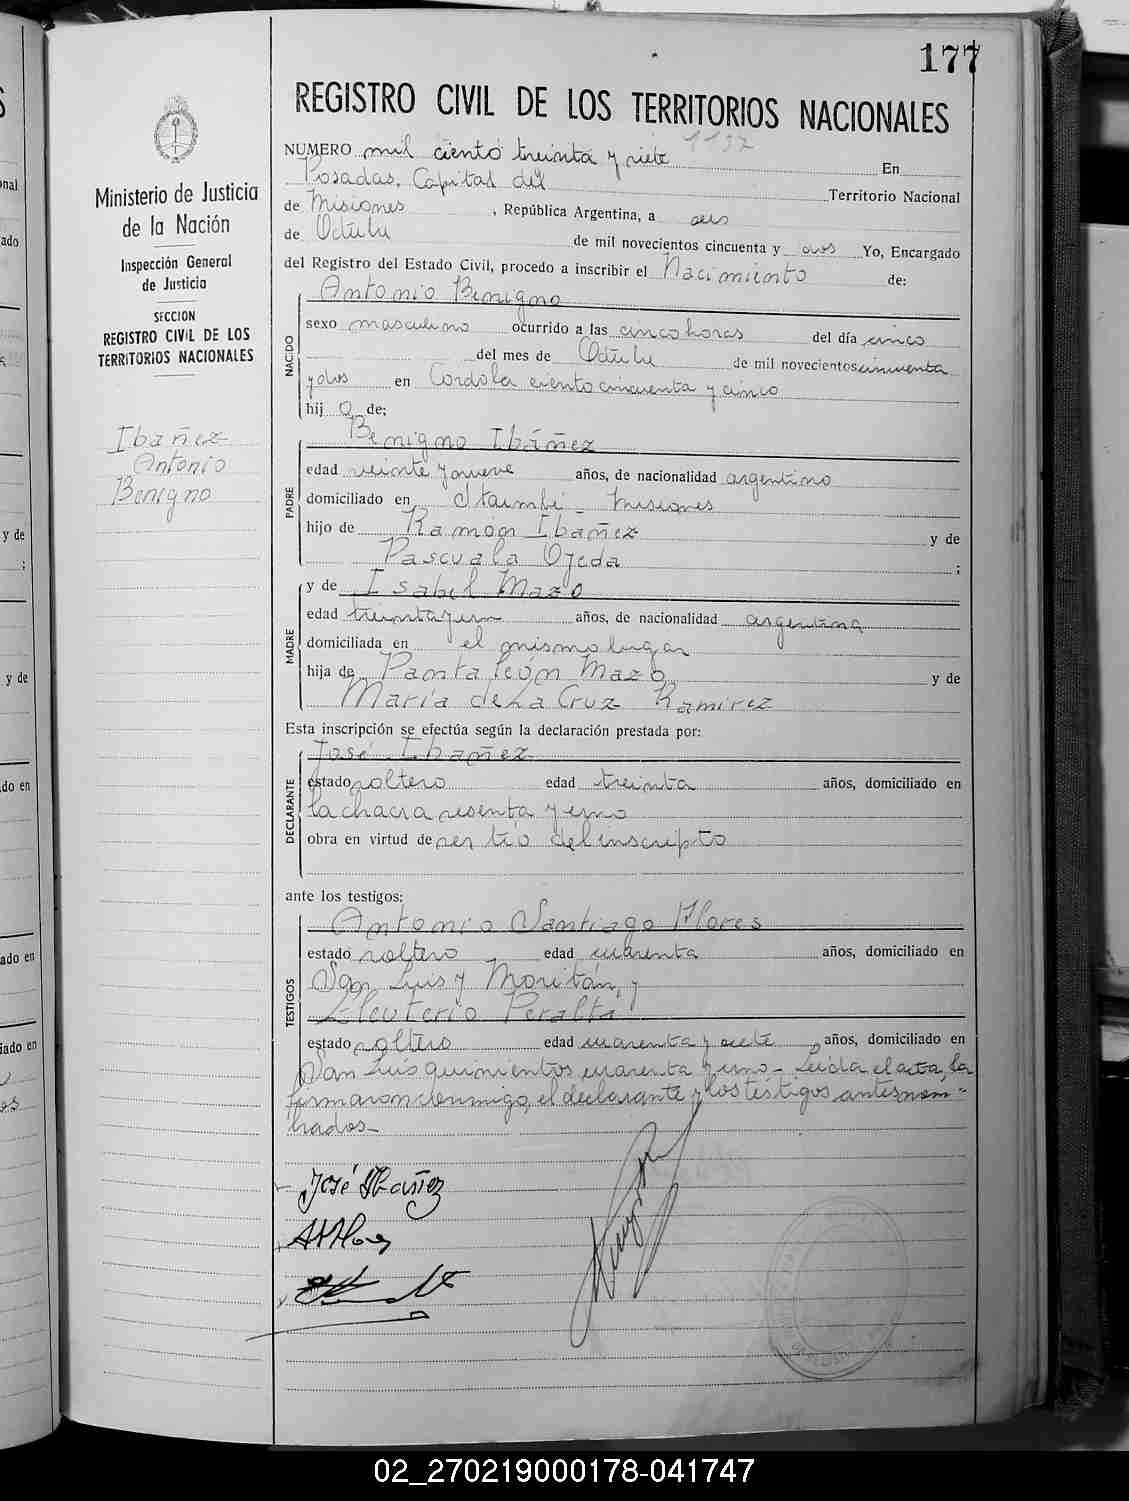 177
REGISTRO CIVIL DE LOS TERRITORIOS NACIONALES
1137
NUMERO mil ciento treinta y siete En
Posadas, Capital del Territorio Nacional
de Misiones, República Argentina, a seis
de Octubre de mil novecientos cincuenta y dos Yo, Encargado
del Registro del Estado Civil, procedo a inscribir el Nacimiento de:
Antonio Benigno
NACIDO
sexo masculino ocurrido a las cinco horas del día cinco
del mes de Octubre de mil novecientos cincuenta
y dos en Cordoba ciento cincuenta y cinco
hij o de;
Benigno Ibáñez
PADRE
edad veinte y nueve años, de nacionalidad argentino
domiciliado en Itaimbé - Misiones
hijo de Ramón Ibañez y de
Pascuala Ojeda ;
y de Isabel Mazo
MADRE
edad treinta y un años, de nacionalidad argentina
domiciliada en el mismo lugar
hija de Pantaleón Mazo y de
María de La Cruz Ramirez
Esta inscripción se efectúa según la declaración prestada por:
José Ibañez
DECLARANTE
estado soltero edad treinta años, domiciliado en
la chacra sesenta y uno
obra en virtud de ser tío del inscripto
ante los testigos:
Antonio Santiago Flores
TESTIGOS
estado soltero edad cuarenta años, domiciliado en
San Luis y Moritán, y
Eleuterio Peralta
estado soltero edad cuarenta y siete, años, domiciliado en
San Luis quinientos cuarenta y uno - Leída el acta, la
firmaron conmigo, el declarante y los testigos antes nom=
brados-
José Ibañez
Ministerio de Justicia
de la Nación
Inspección General
de Justicia
SECCION
REGISTRO CIVIL DE LOS
TERRITORIOS NACIONALES
Ibañez
Antonio
Benigno
02_270219000178-041747